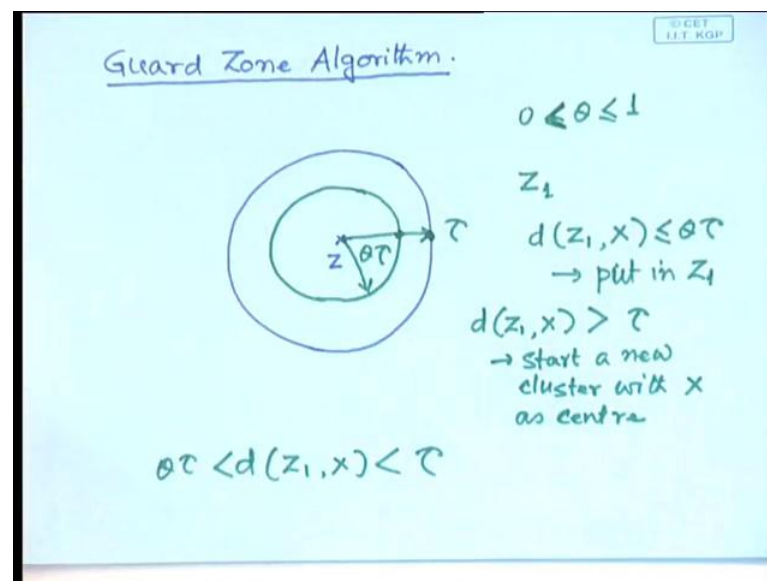 © CET
I.I.T. KGP
Guard Zone Algorithm.
0 ≤ θ ≤ 1
Z₁
τ
d(Z₁,X) ≤ θτ
Z
θτ
→ put in Z₁
d(Z₁,X) > τ
→ start a new
cluster with X
as centre
θτ < d(Z₁,X) < τ